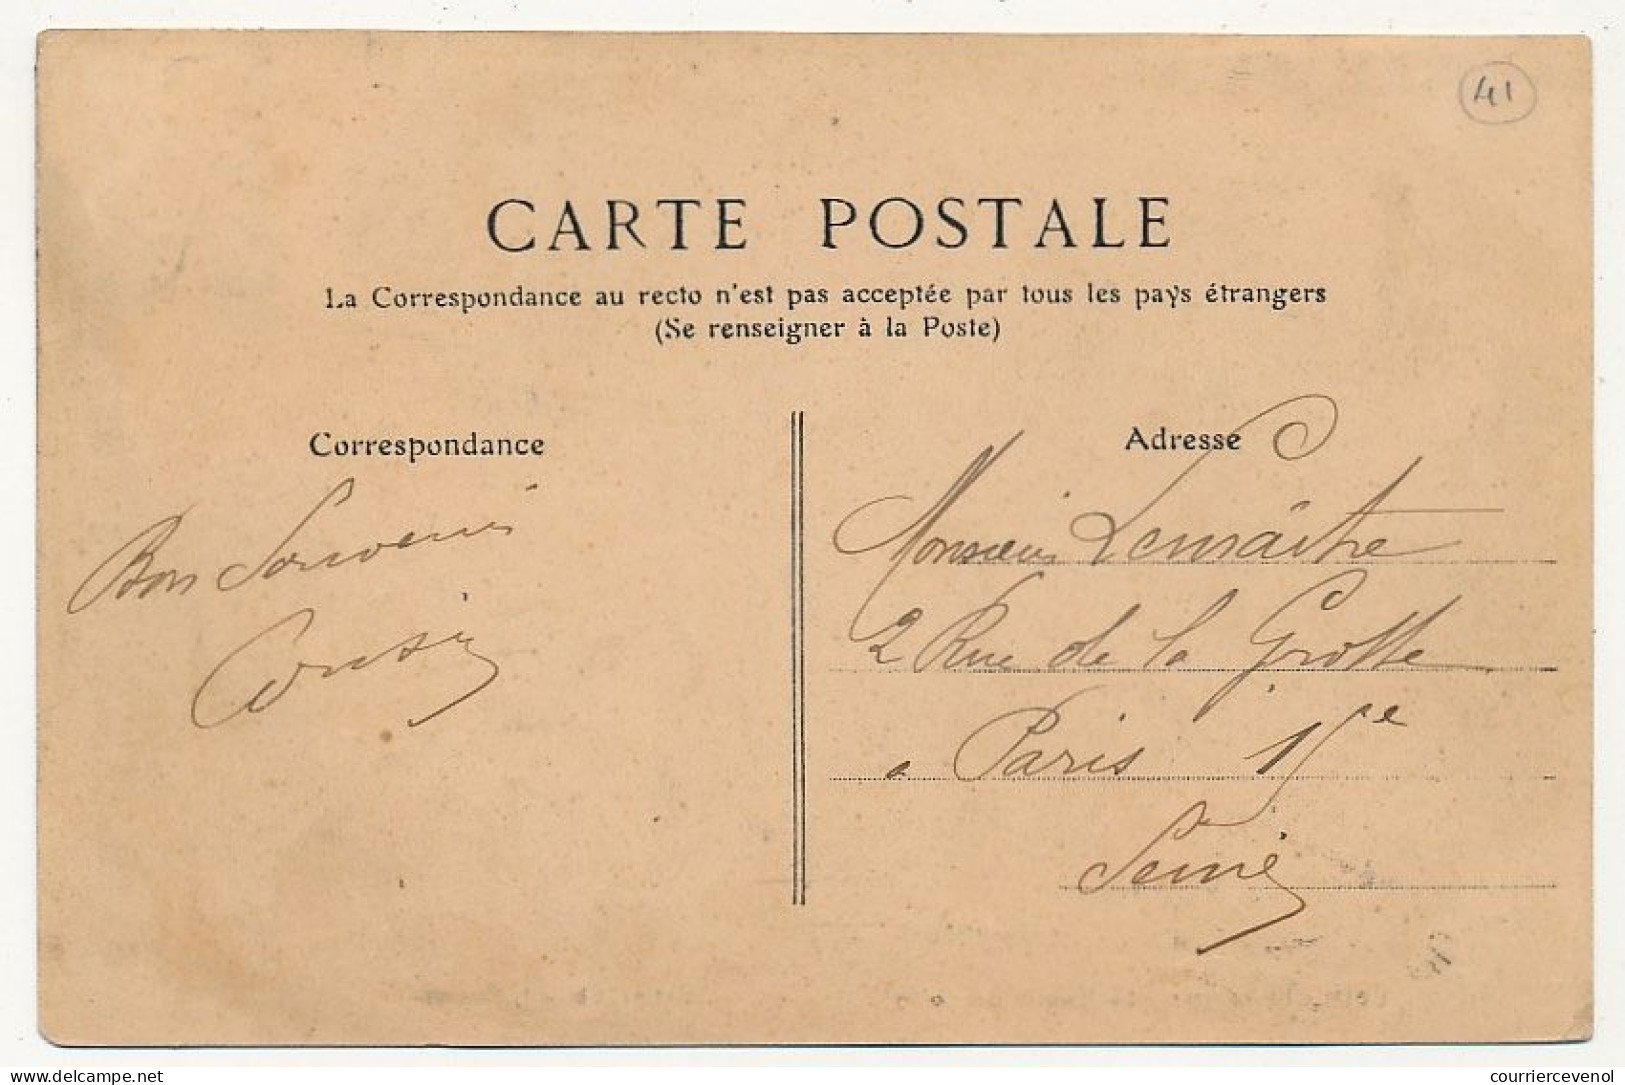 41
CARTE POSTALE
La Correspondance au recto n'est pas acceptée par tous les pays étrangers
(Se renseigner à la Poste)
Correspondance
Bon Souvenir
Adresse
Monsieur Lemaître
2 Rue de la Grotte
a Paris 15e
Seine
delcampe.net
courriercevenol